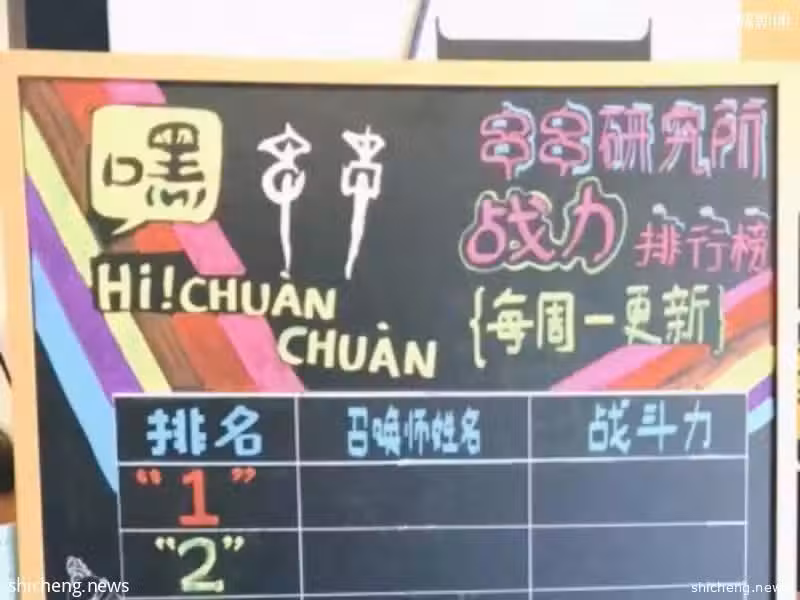 嘿 串串
Hi! CHUÀN
CHUÀN
研究所
战力 排行榜
{每周一更新}
排名 召唤师姓名 战斗力
"1"
"2"
shicheng.news
shicheng.news